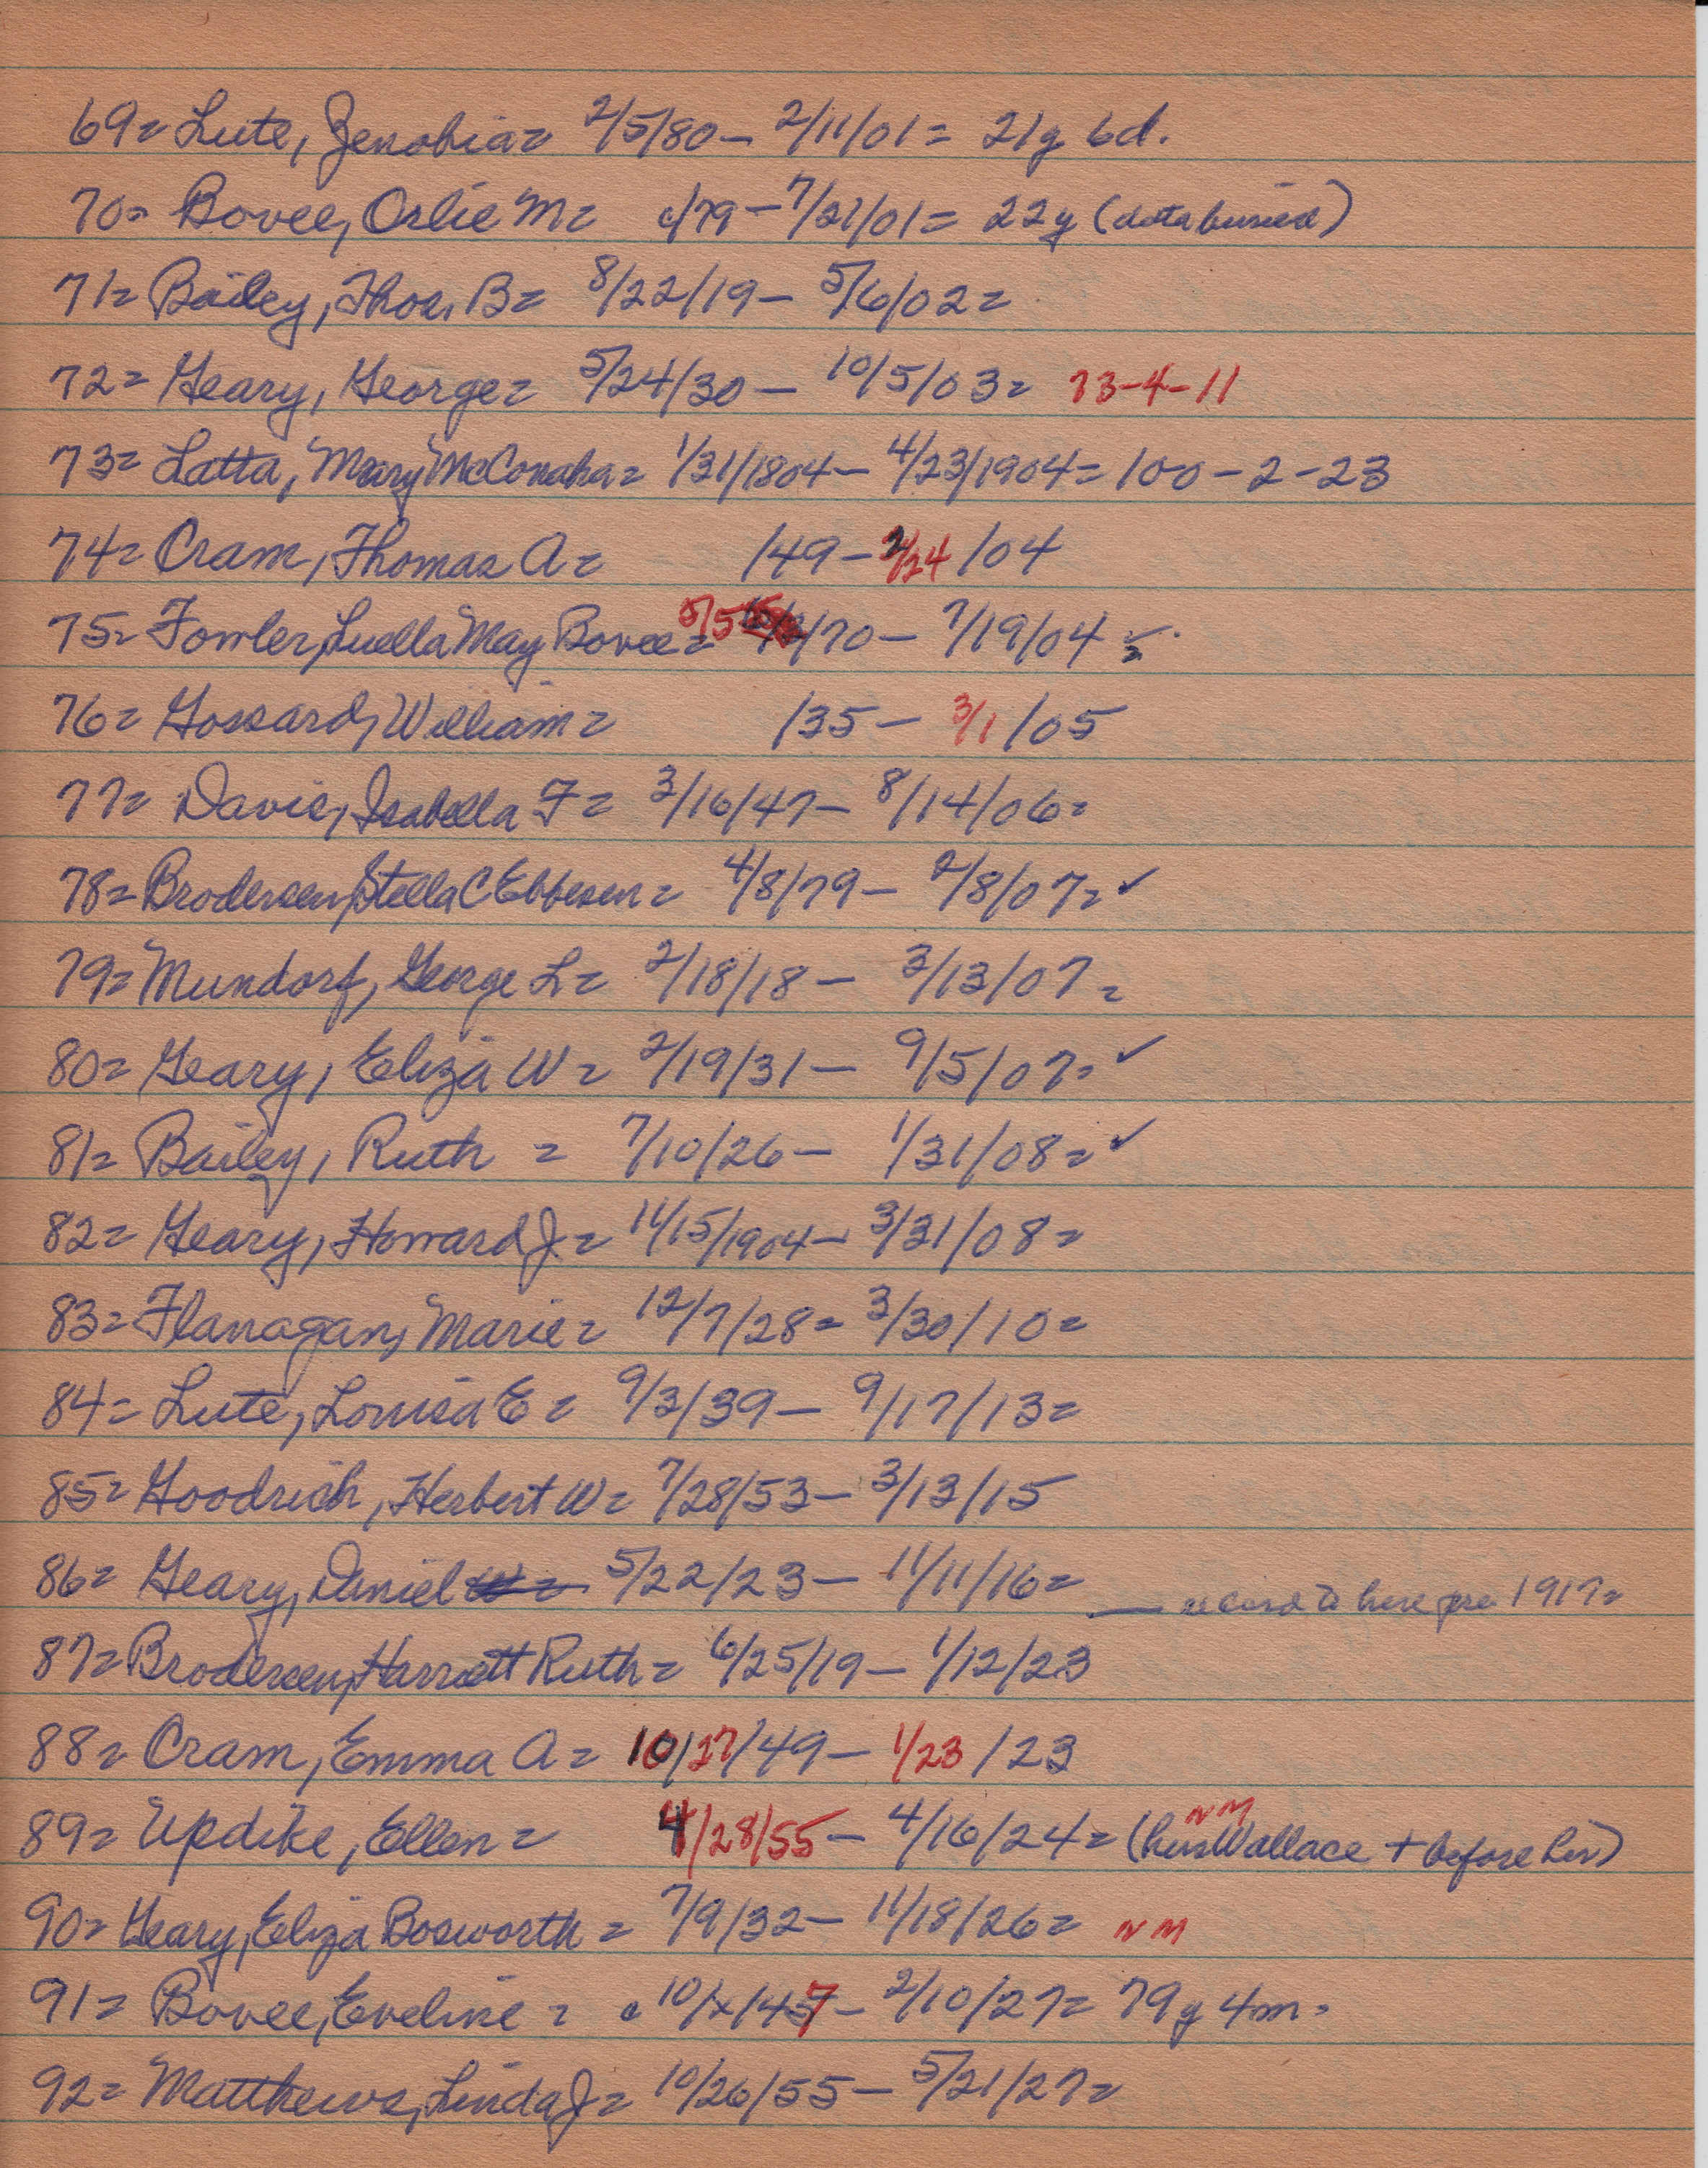 69= Lute, Zenobia= 2/5/80 - 2/11/01 = 21y 6d.
70= Bovee, Orlie M= c/79 - 7/21/01 = 22y (data buried)
71= Bailey, Thos. B= 8/22/19 - 5/6/02=
72= Geary, George= 5/24/30 - 10/5/03= 73-4-11
73= Latta, Mary McConaha= 1/31/1804 - 4/23/1904= 100-2-23
74= Cram, Thomas A= /49 - 2/24/04
75= Fowler, Luella May Bovee= 5/5/70 - 7/19/04 = ✓
76= Gossard, William= /35 - 3/1/05
77= Davis, Isabella F= 3/16/47 - 8/14/06=
78= Brodersen, Stella C Ebbesen= 4/8/79 - 2/8/07= ✓
79= Mundorf, George L= 2/18/18 - 3/13/07=
80= Geary, Eliza W= 2/19/31 - 9/5/07= ✓
81= Bailey, Ruth = 7/10/26 - 1/31/08= ✓
82= Geary, Howard J.= 11/15/1904 - 3/31/08=
83= Flanagan, Marie= 12/7/28= 3/30/10=
84= Lute, Louisa E= 9/3/39 - 9/17/13=
85= Goodrich, Herbert W= 7/28/53 - 3/13/15
86= Geary, Daniel 5/22/23 - 11/11/16= — record to here pre 1917=
87= Brodersen, Harriett Ruth= 6/25/19 - 1/12/23
88= Cram, Emma A= 10/27/49 - 1/23/23
89= Updike, Ellen= 4/28/55 - 4/16/24= (hus Wallace + before her) NM
90= Geary, Eliza Bosworth= 7/9/32 - 11/18/26= NM
91= Bovee, Eveline= c 10/x/47 - 2/10/27= 79y 4m=
92= Matthews, Linda J= 10/26/55 - 5/21/27=